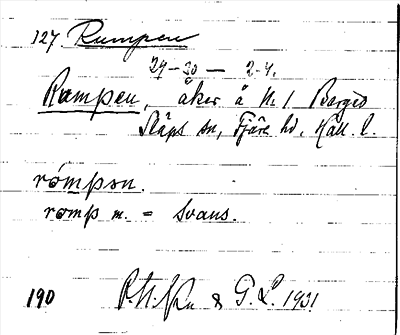 127 Rumpen
29-30 — 2-4.
Rumpen, åker å N. 1 Barged
Släps sn, Fjäre hd, Hall. l.
rómpən.
romp m. = Svans.
190 & G. L. 1931